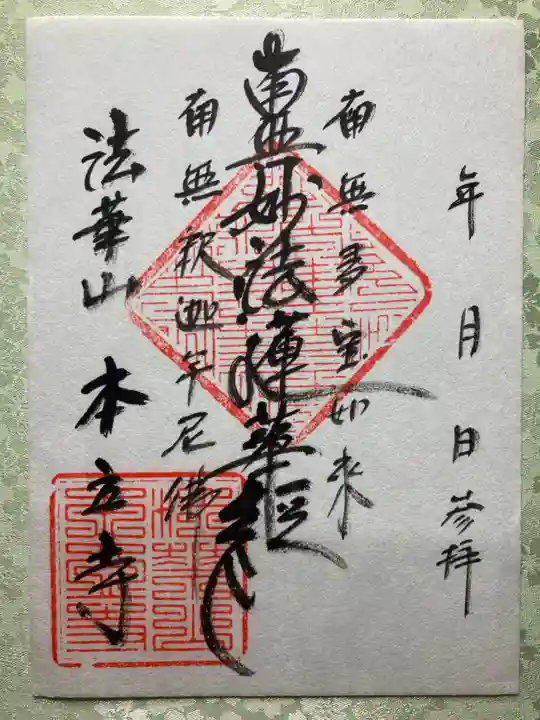 年 月 日参拝
南無多宝如来
南無妙法蓮華経
南無釈迦牟尼佛
法華山 本立寺